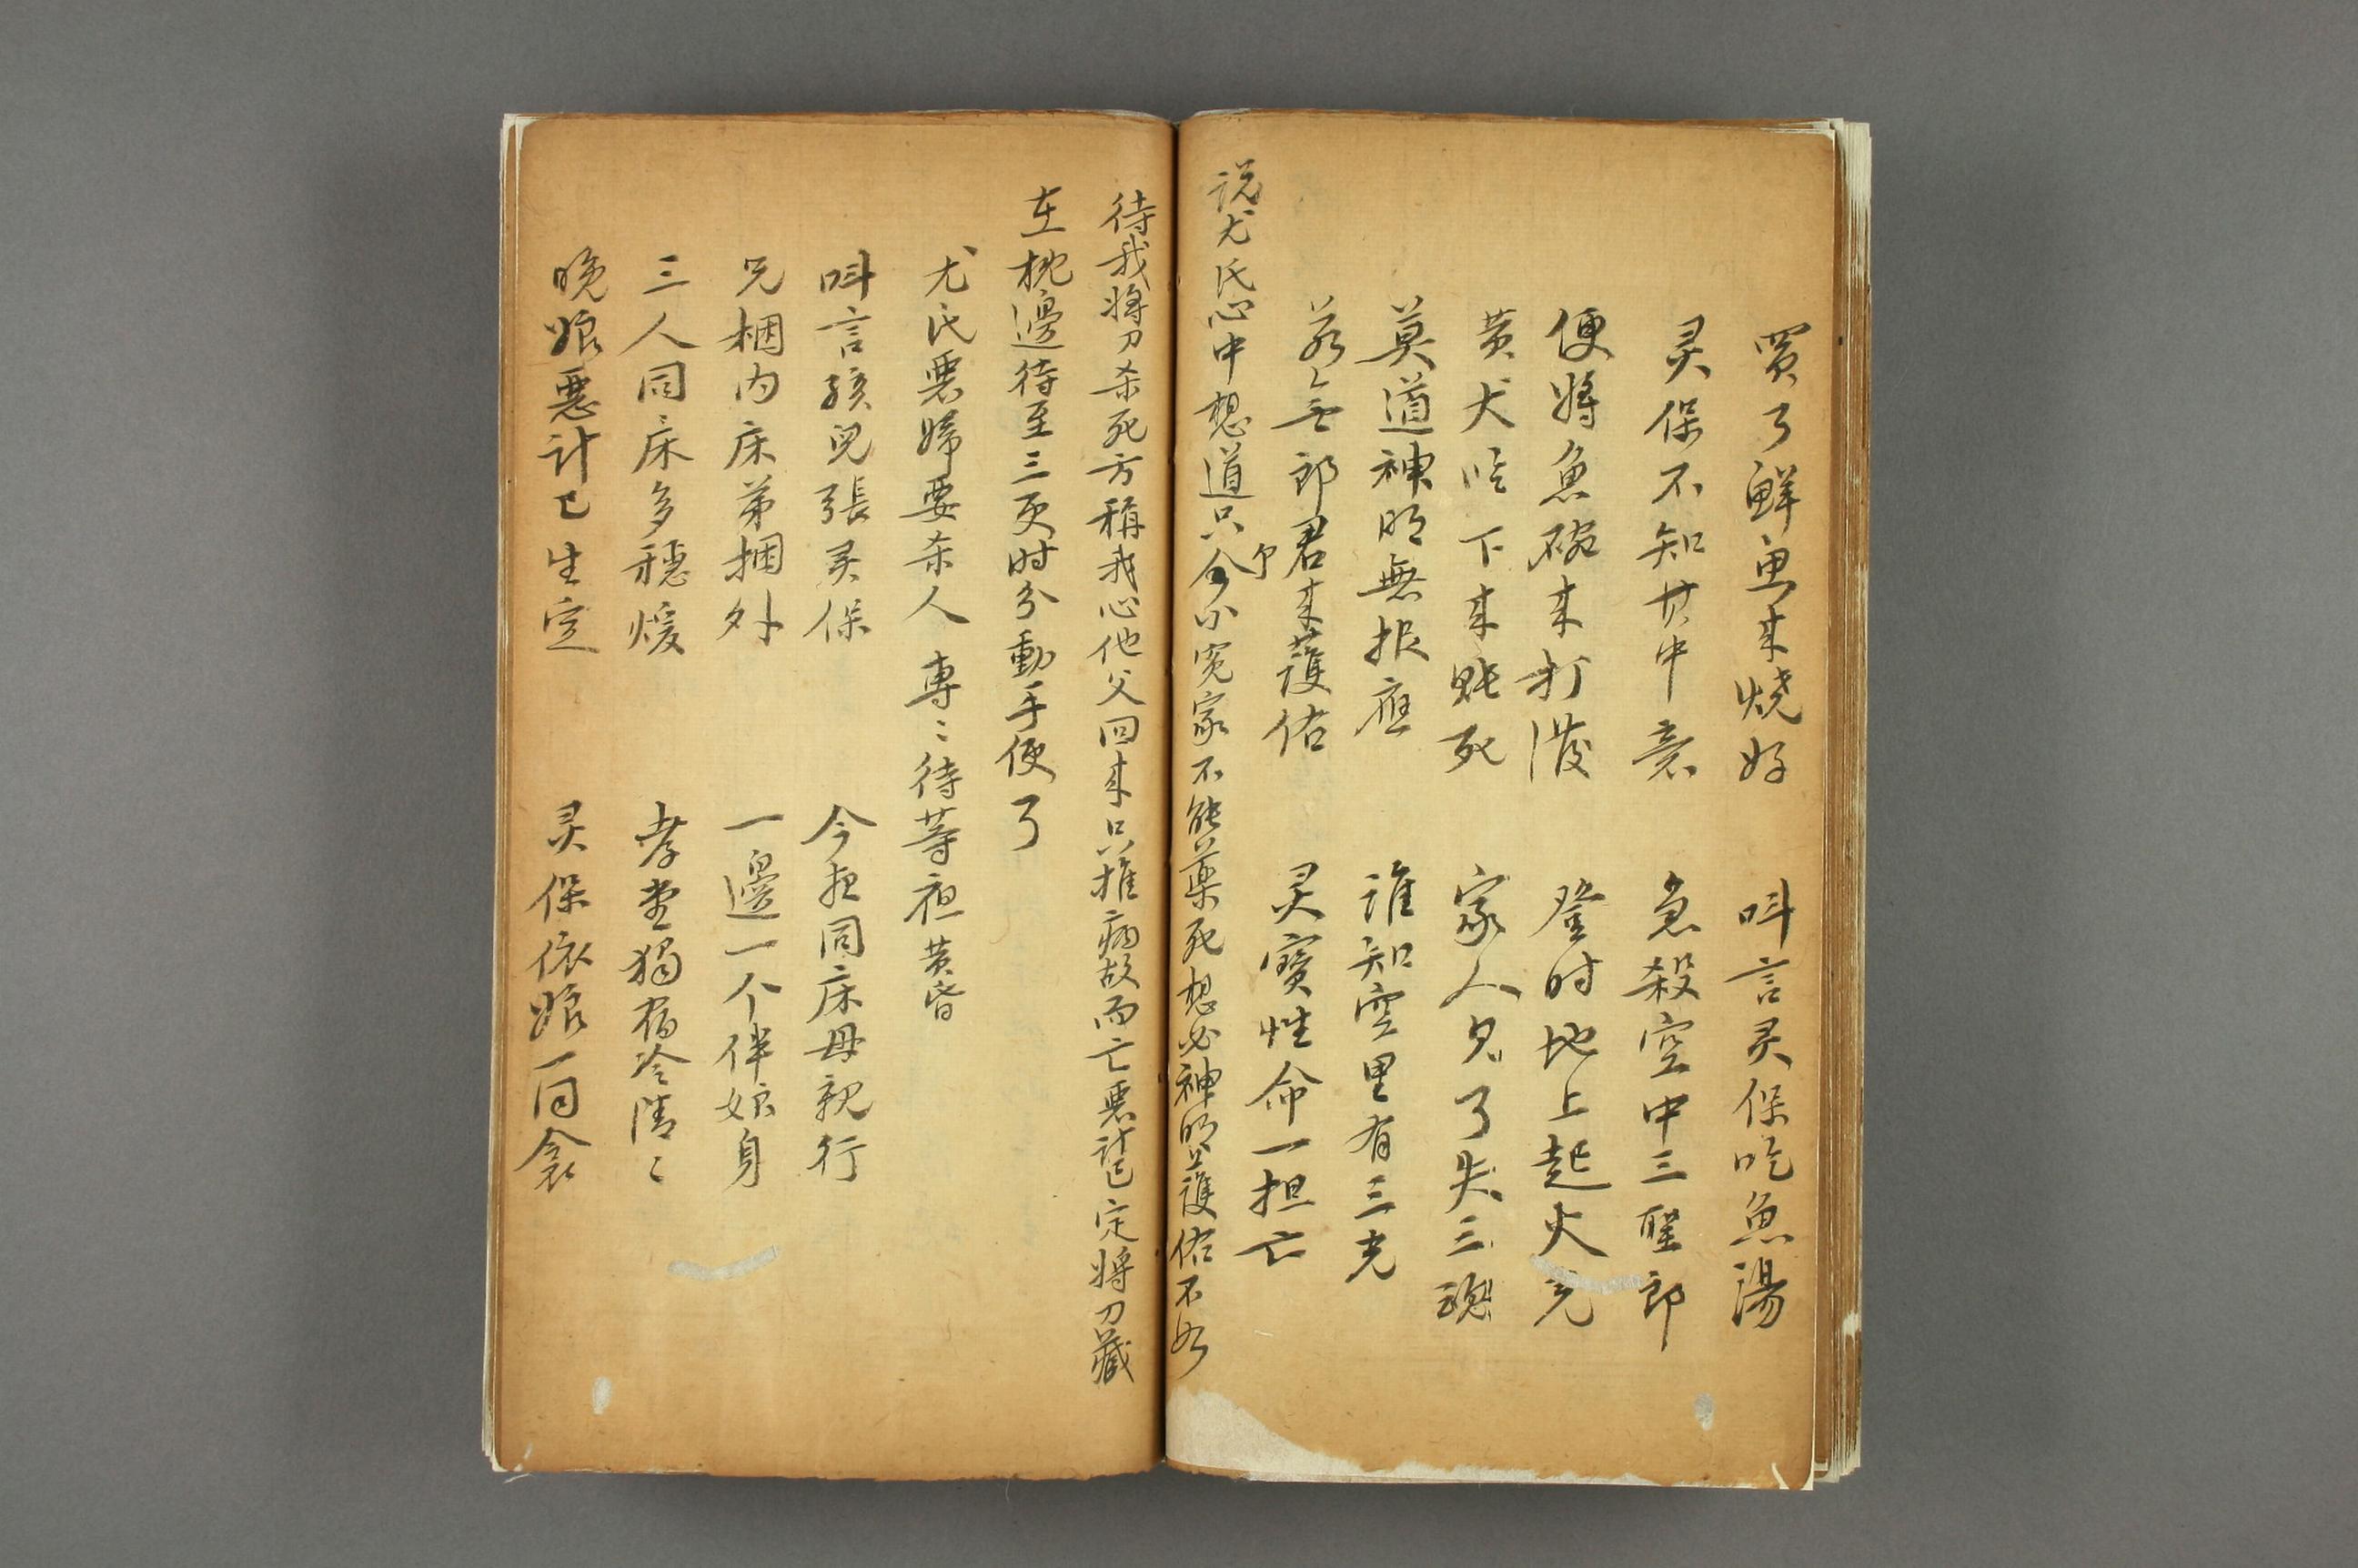 買了鮮魚来燒好 呌言灵保吃魚湯
灵保不知其中意 急殺空中三聖郎
便將魚碗来打潑 登时地上起火光
黄犬吃下来賍死 家人見了失三魂
莫道神明無报應 誰知空里有三光
若無郎君来護佑 灵寶性命一担亡
说尤氏心中想道只个小冤家不能藥死想必神明護佑不如
待我將刀杀死方稱我心他父回来只推病故而亡惡計已定將刀藏
在枕邊待至三更时分動手便了
尤氏惡婦要杀人 專〻待等夜黄昏
呌言孩兒張灵保 今夜同床母親行
兄捆内床弟捆外 一邊一个伴娘身
三人同床多穩煖 孝堂獨宿冷清〻
晚娘惡計已生定 灵保依娘一同衾